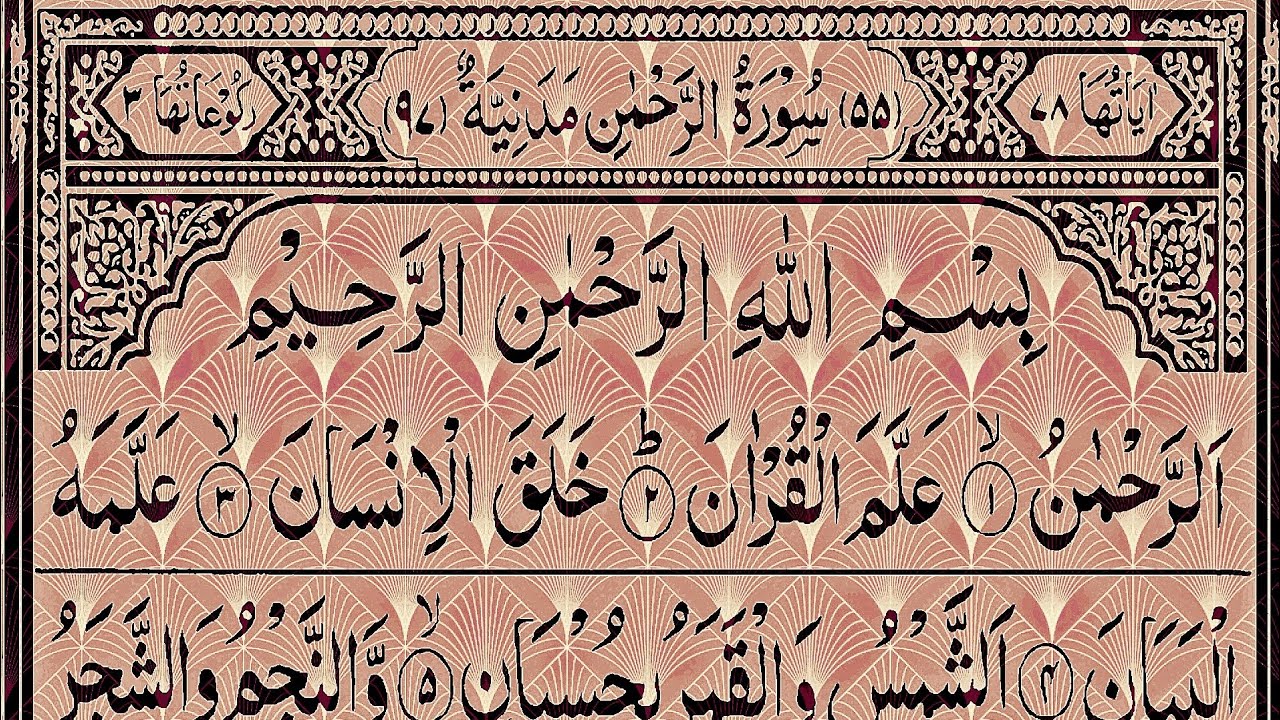 اٰيَاتُهَا ٧٨ (٥٥) سُوْرَةُ الرَّحْمٰنِ مَدَنِيَّةٌ (٩٧) رُكُوْعَاتُهَا ٣
بِسْمِ اللّٰهِ الرَّحْمٰنِ الرَّحِيْمِ
اَلرَّحْمٰنُ ۙ﴿١﴾ عَلَّمَ الْقُرْاٰنَ ؕ﴿٢﴾ خَلَقَ الْاِنْسَانَ ۙ﴿٣﴾ عَلَّمَهُ
الْبَيَانَ ﴿٤﴾ اَلشَّمْسُ وَ الْقَمَرُ بِحُسْبَانٍ ۙ﴿٥﴾ وَّ النَّجْمُ وَ الشَّجَرُ